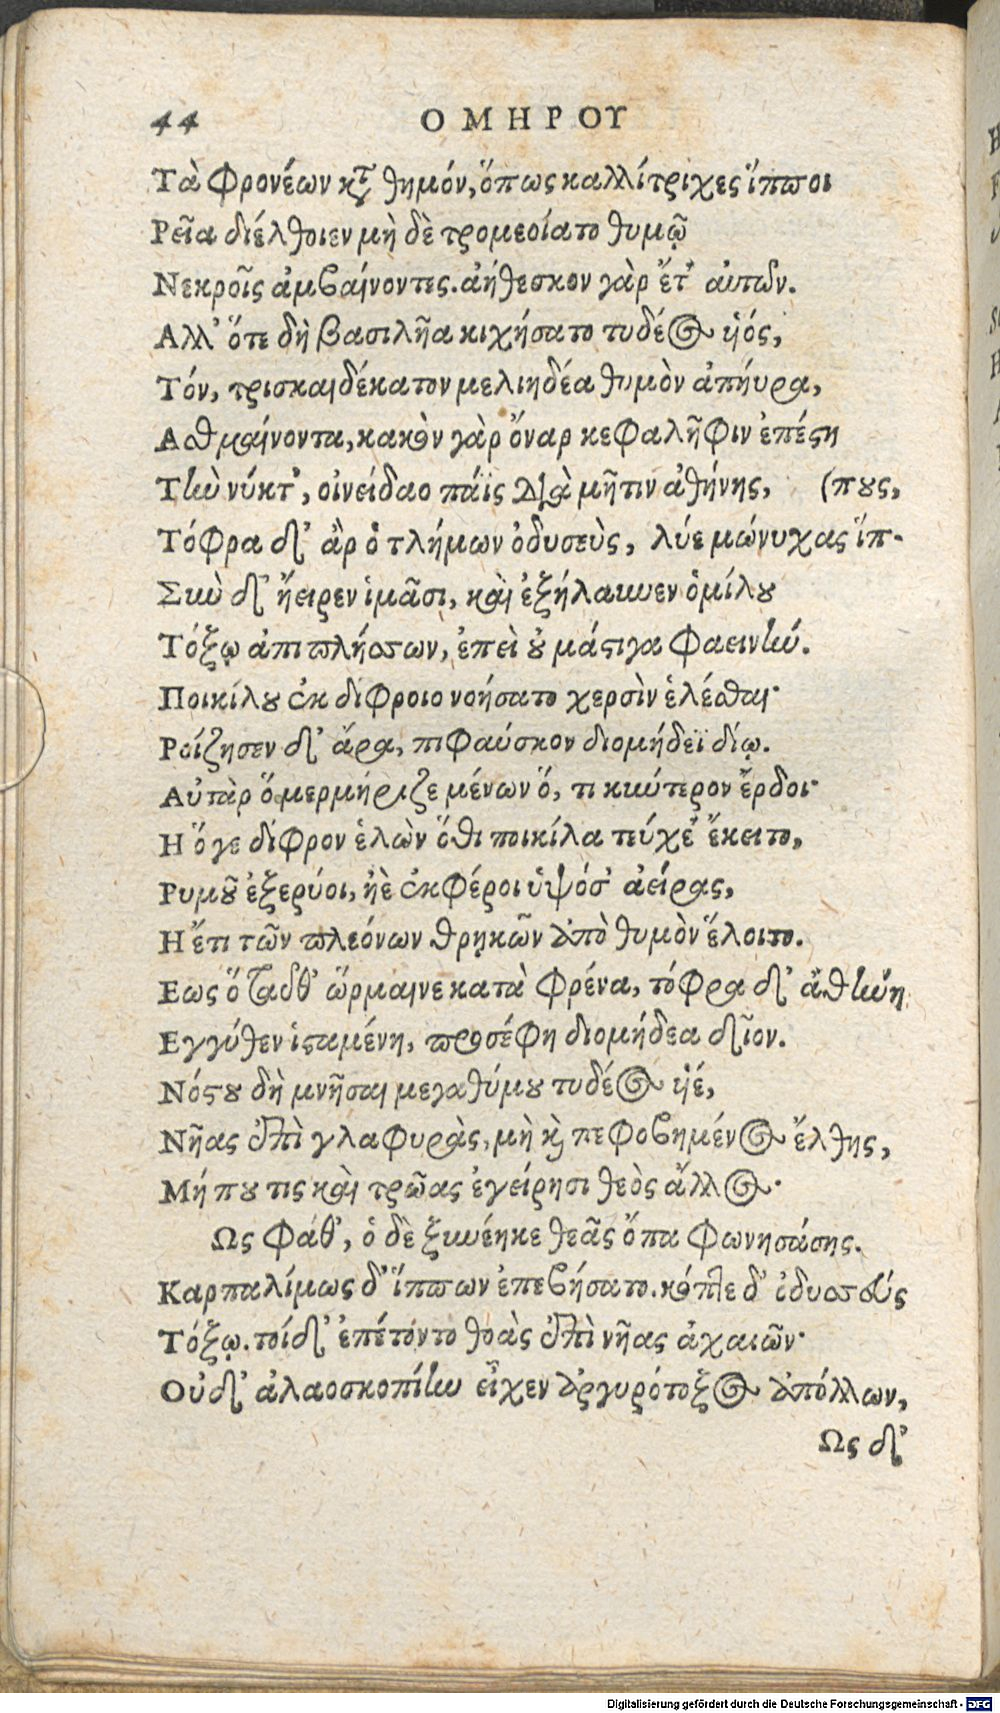 44 ΟΜΗΡΟΥ
Τὰ φρονέων κτ̀ θημόν, ὅπως καλλίτριχες ἵπποι
Ρεῖα διέλθοιεν μὴ δὲ τρομεοίατο θυμῷ
Νεκροῖς ἀμβαίνοντες. ἀήθεσκον γὰρ ἔτ' αὐτῶν.
Αλλ' ὅτε δὴ βασιλῆα κιχήσατο τυδέος ὑιός,
Τόν, τρισκαιδέκατον μελιηδέα θυμὸν ἀπήυρα,
Ασθμαίνοντα, κακὸν γὰρ ὄναρ κεφαλῆφιν ἐπέστη
Τὴν νύκτ', οἰνείδαο πάϊς διὰ μῆτιν ἀθήνης, (πους,
Τόφρα δ' ἂρ ὁ τλήμων ὀδυσεὺς, λύε μώνυχας ἵπ-
Σὺν δ' ἤειρεν ἱμᾶσι, καὶ ἐξήλαυνεν ὁμίλου
Τόξῳ ἀπιπλήσσων, ἐπεὶ οὐ μάστιγα φαεινήν.
Ποικίλου ἐκ δίφροιο νοήσατο χερσὶν ἑλέσθαι·
Ροίζησεν δ' ἄρα, πιφαύσκον διομήδεϊ δίῳ.
Αὐτὰρ ὅ μερμήριζε μένων ὅ, τι κύντερον ἔρδοι·
Η ὅγε δίφρον ἑλὼν ὅθι ποικίλα τεύχε' ἔκειτο,
Ρυμοῦ ἐξερύοι, ἠὲ ἐκφέροι ὑψόσ' ἀείρας,
Η ἔτι τῶν πλεόνων θρηκῶν ἀπὸ θυμὸν ἕλοιτο.
Εως ὅ ταῦθ' ὥρμαινε κατὰ φρένα, τόφρα δ' ἀθήνη
Εγγύθεν ἱσταμένη, προσέφη διομήδεα δῖον.
Νόστου δὴ μνῆσαι μεγαθύμου τυδέος ὑιέ,
Νῆας ἐπὶ γλαφυρὰς, μὴ καὶ πεφοβημένος ἔλθης,
Μή που τις καὶ τρῶας ἐγείρησι θεὸς ἄλλος·
Ως φάθ', ὁ δὲ ξυνέηκε θεᾶς ὄπα φωνησάσης.
Καρπαλίμως δ' ἵππων ἐπεβήσατο. κόπτε δ' ὀδυσσεύς
Τόξῳ. τοί δ' ἐπέτοντο θοὰς ἐπὶ νῆας ἀχαιῶν·
Οὐδ' ἀλαοσκοπίην εἶχεν ἀργυρότοξος ἀπόλλων,
Ως δ'
Digitalisierung gefördert durch die Deutsche Forschungsgemeinschaft - DFG